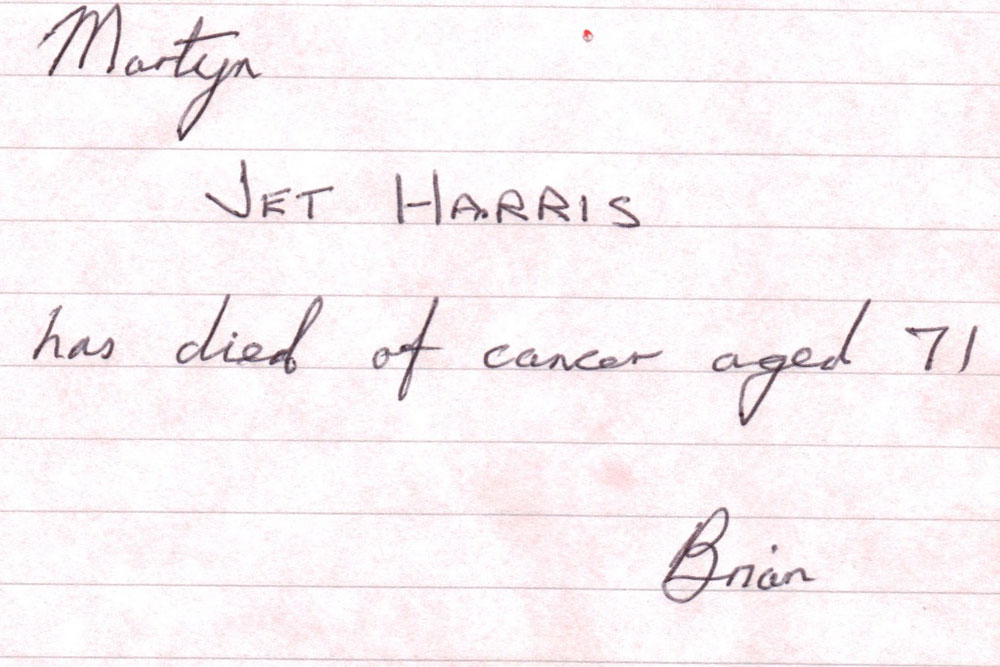 Martyn
JET HARRIS
has died of cancer aged 71
Brian